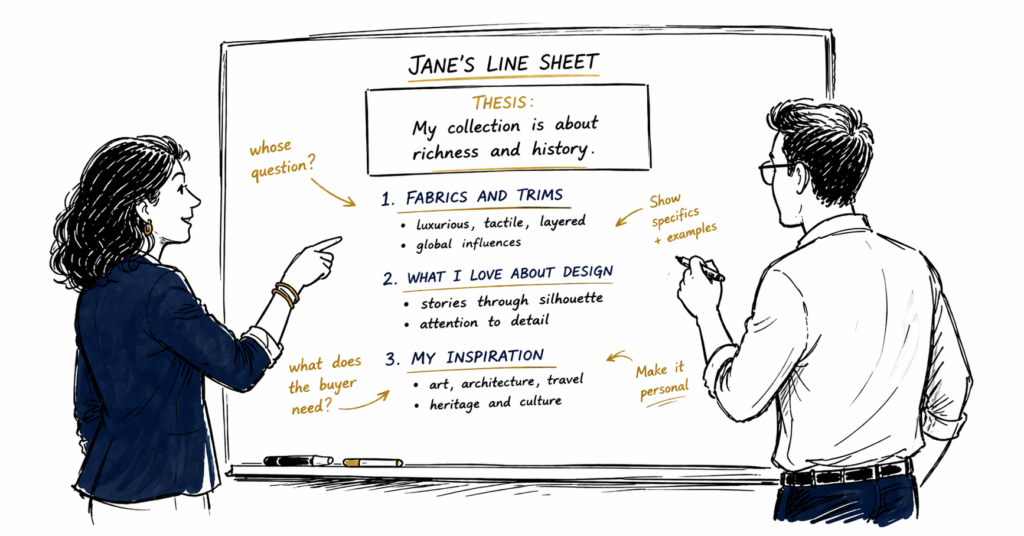 JANE'S LINE SHEET
THESIS:
My collection is about
richness and history.
whose
question?
1. FABRICS AND TRIMS
• luxurious, tactile, layered
• global influences
Show
specifics
+ examples
2. WHAT I LOVE ABOUT DESIGN
• stories through silhouette
• attention to detail
what does
the buyer
need?
3. MY INSPIRATION
• art, architecture, travel
• heritage and culture
Make it
personal